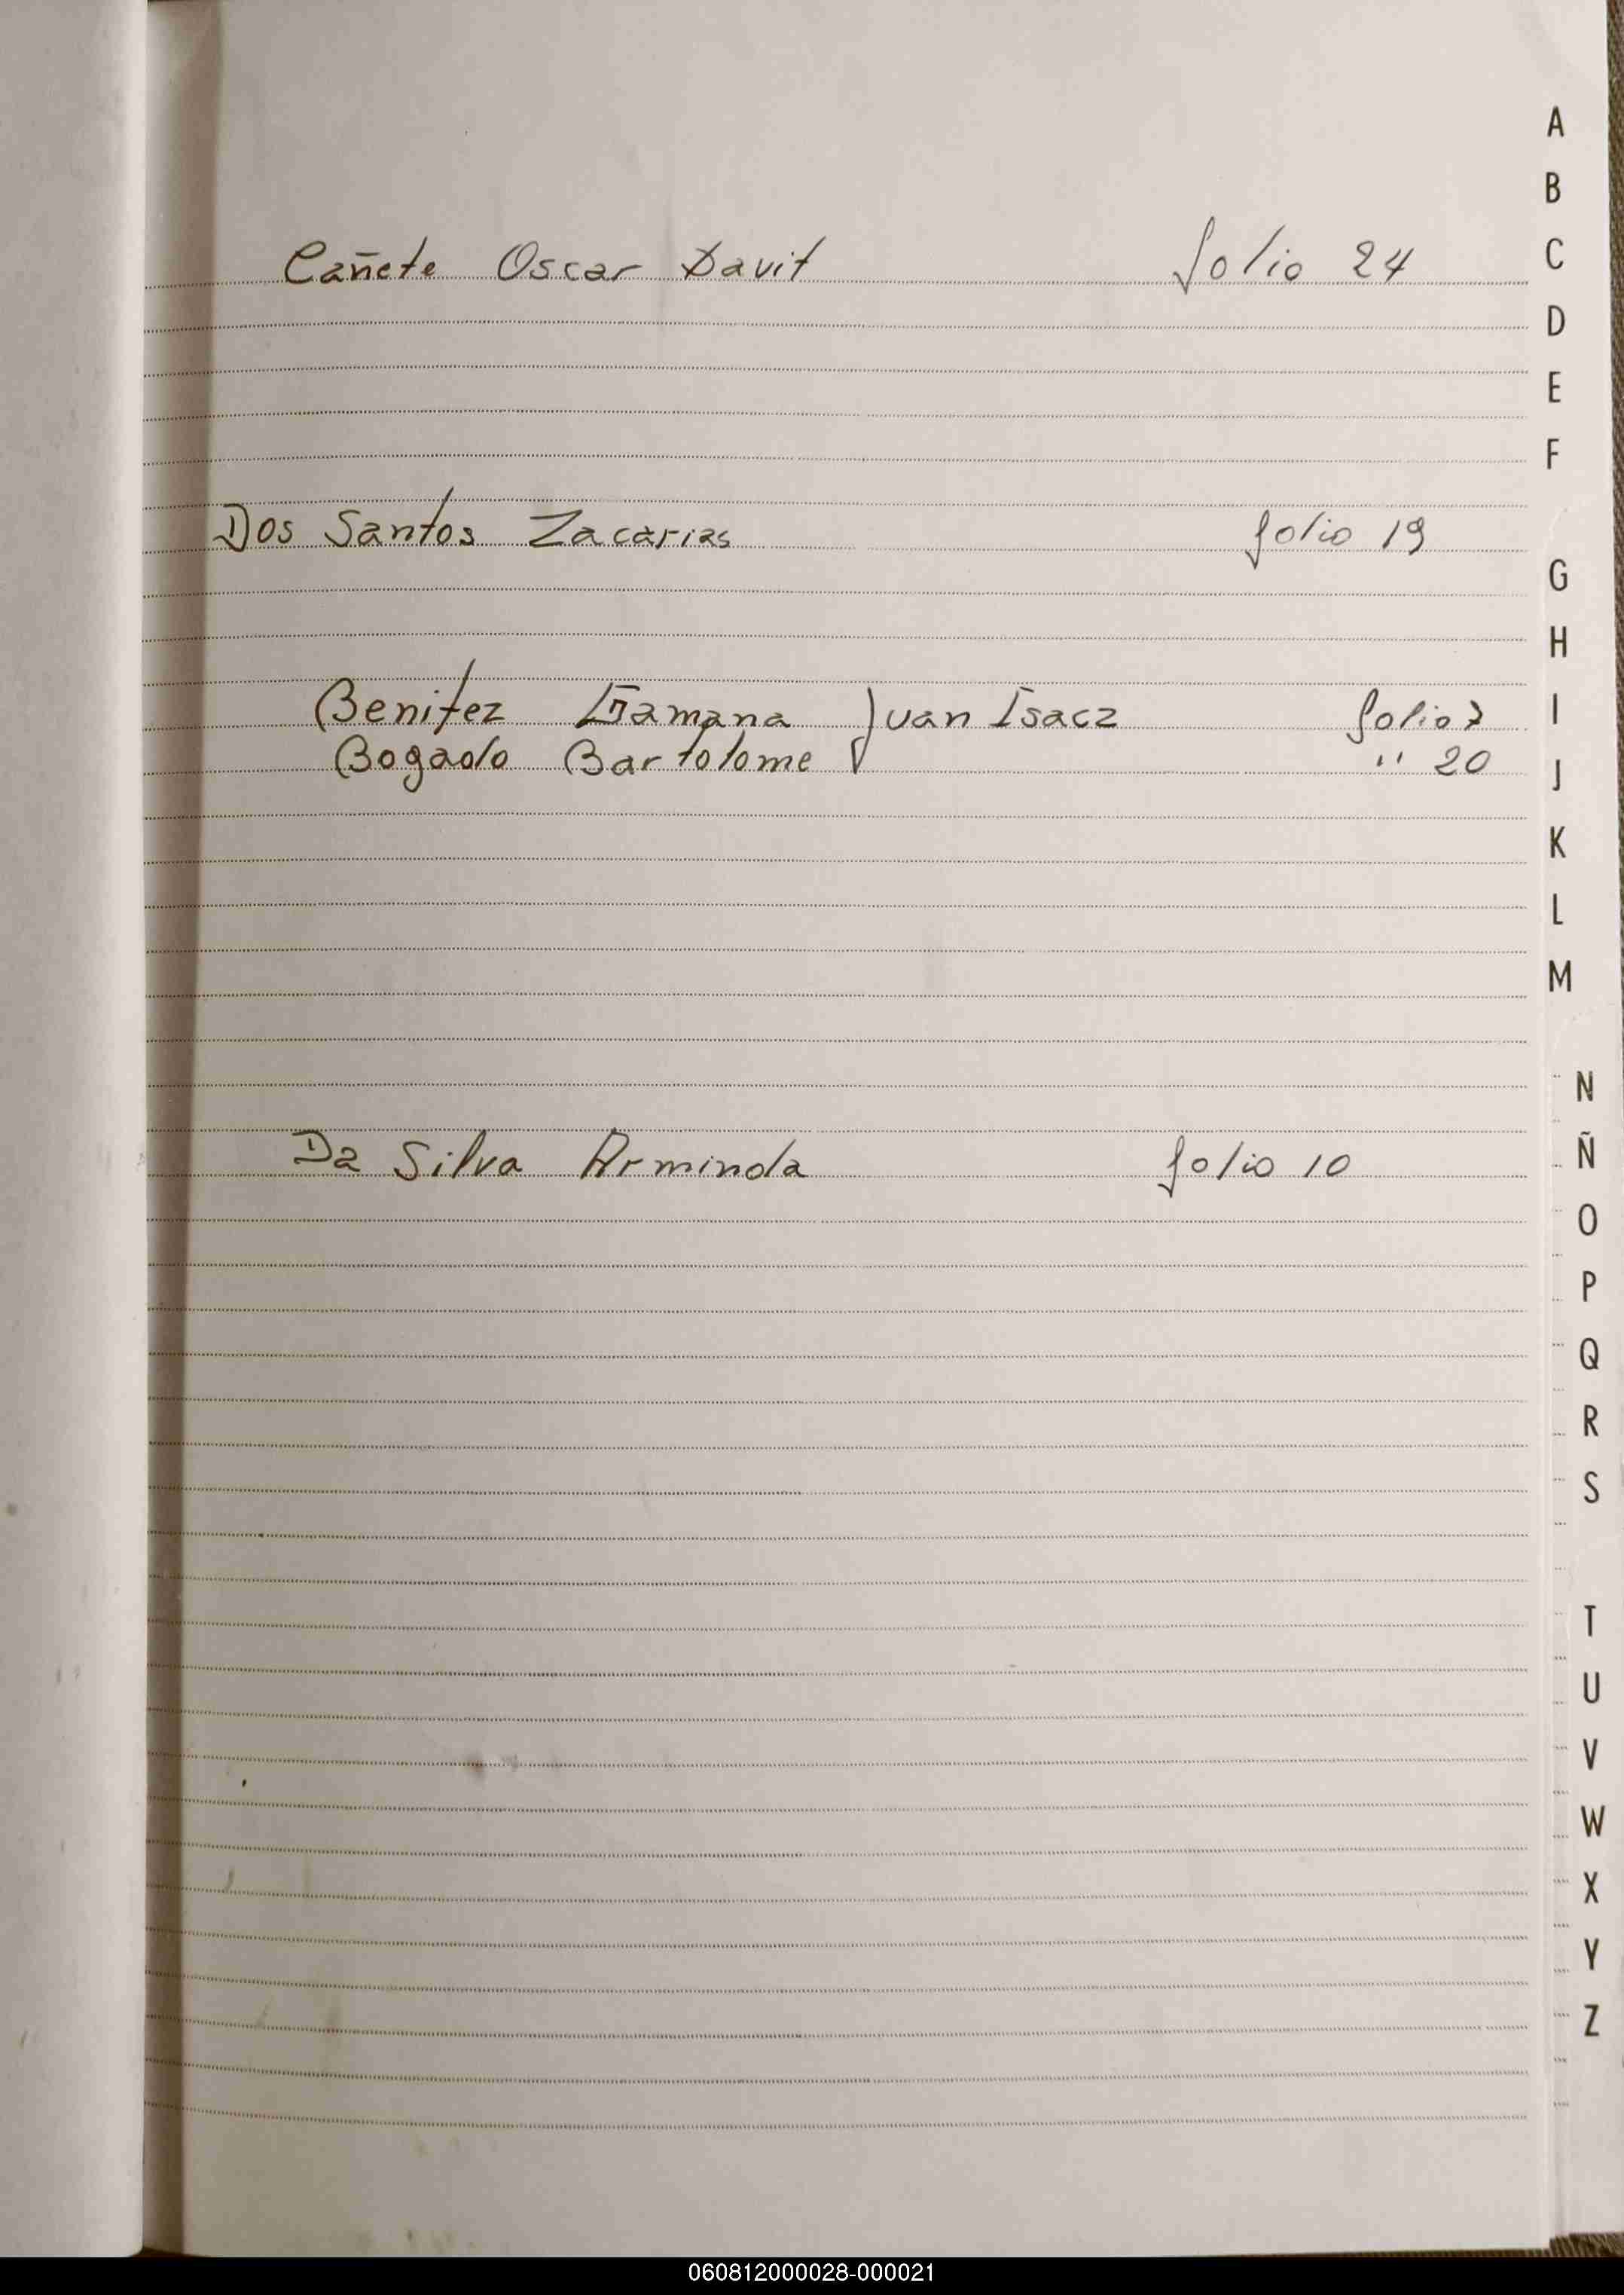 Cañete Oscar Davit folio 24
Dos Santos Zacarias folio 19
Benitez Gamana Juan Isacz folio 7
Bogado Bartolome " 20
Da Silva Arminda folio 10
A
B
C
D
E
F
G
H
I
J
K
L
M
N
Ñ
O
P
Q
R
S
T
U
V
W
X
Y
Z
060812000028-000021